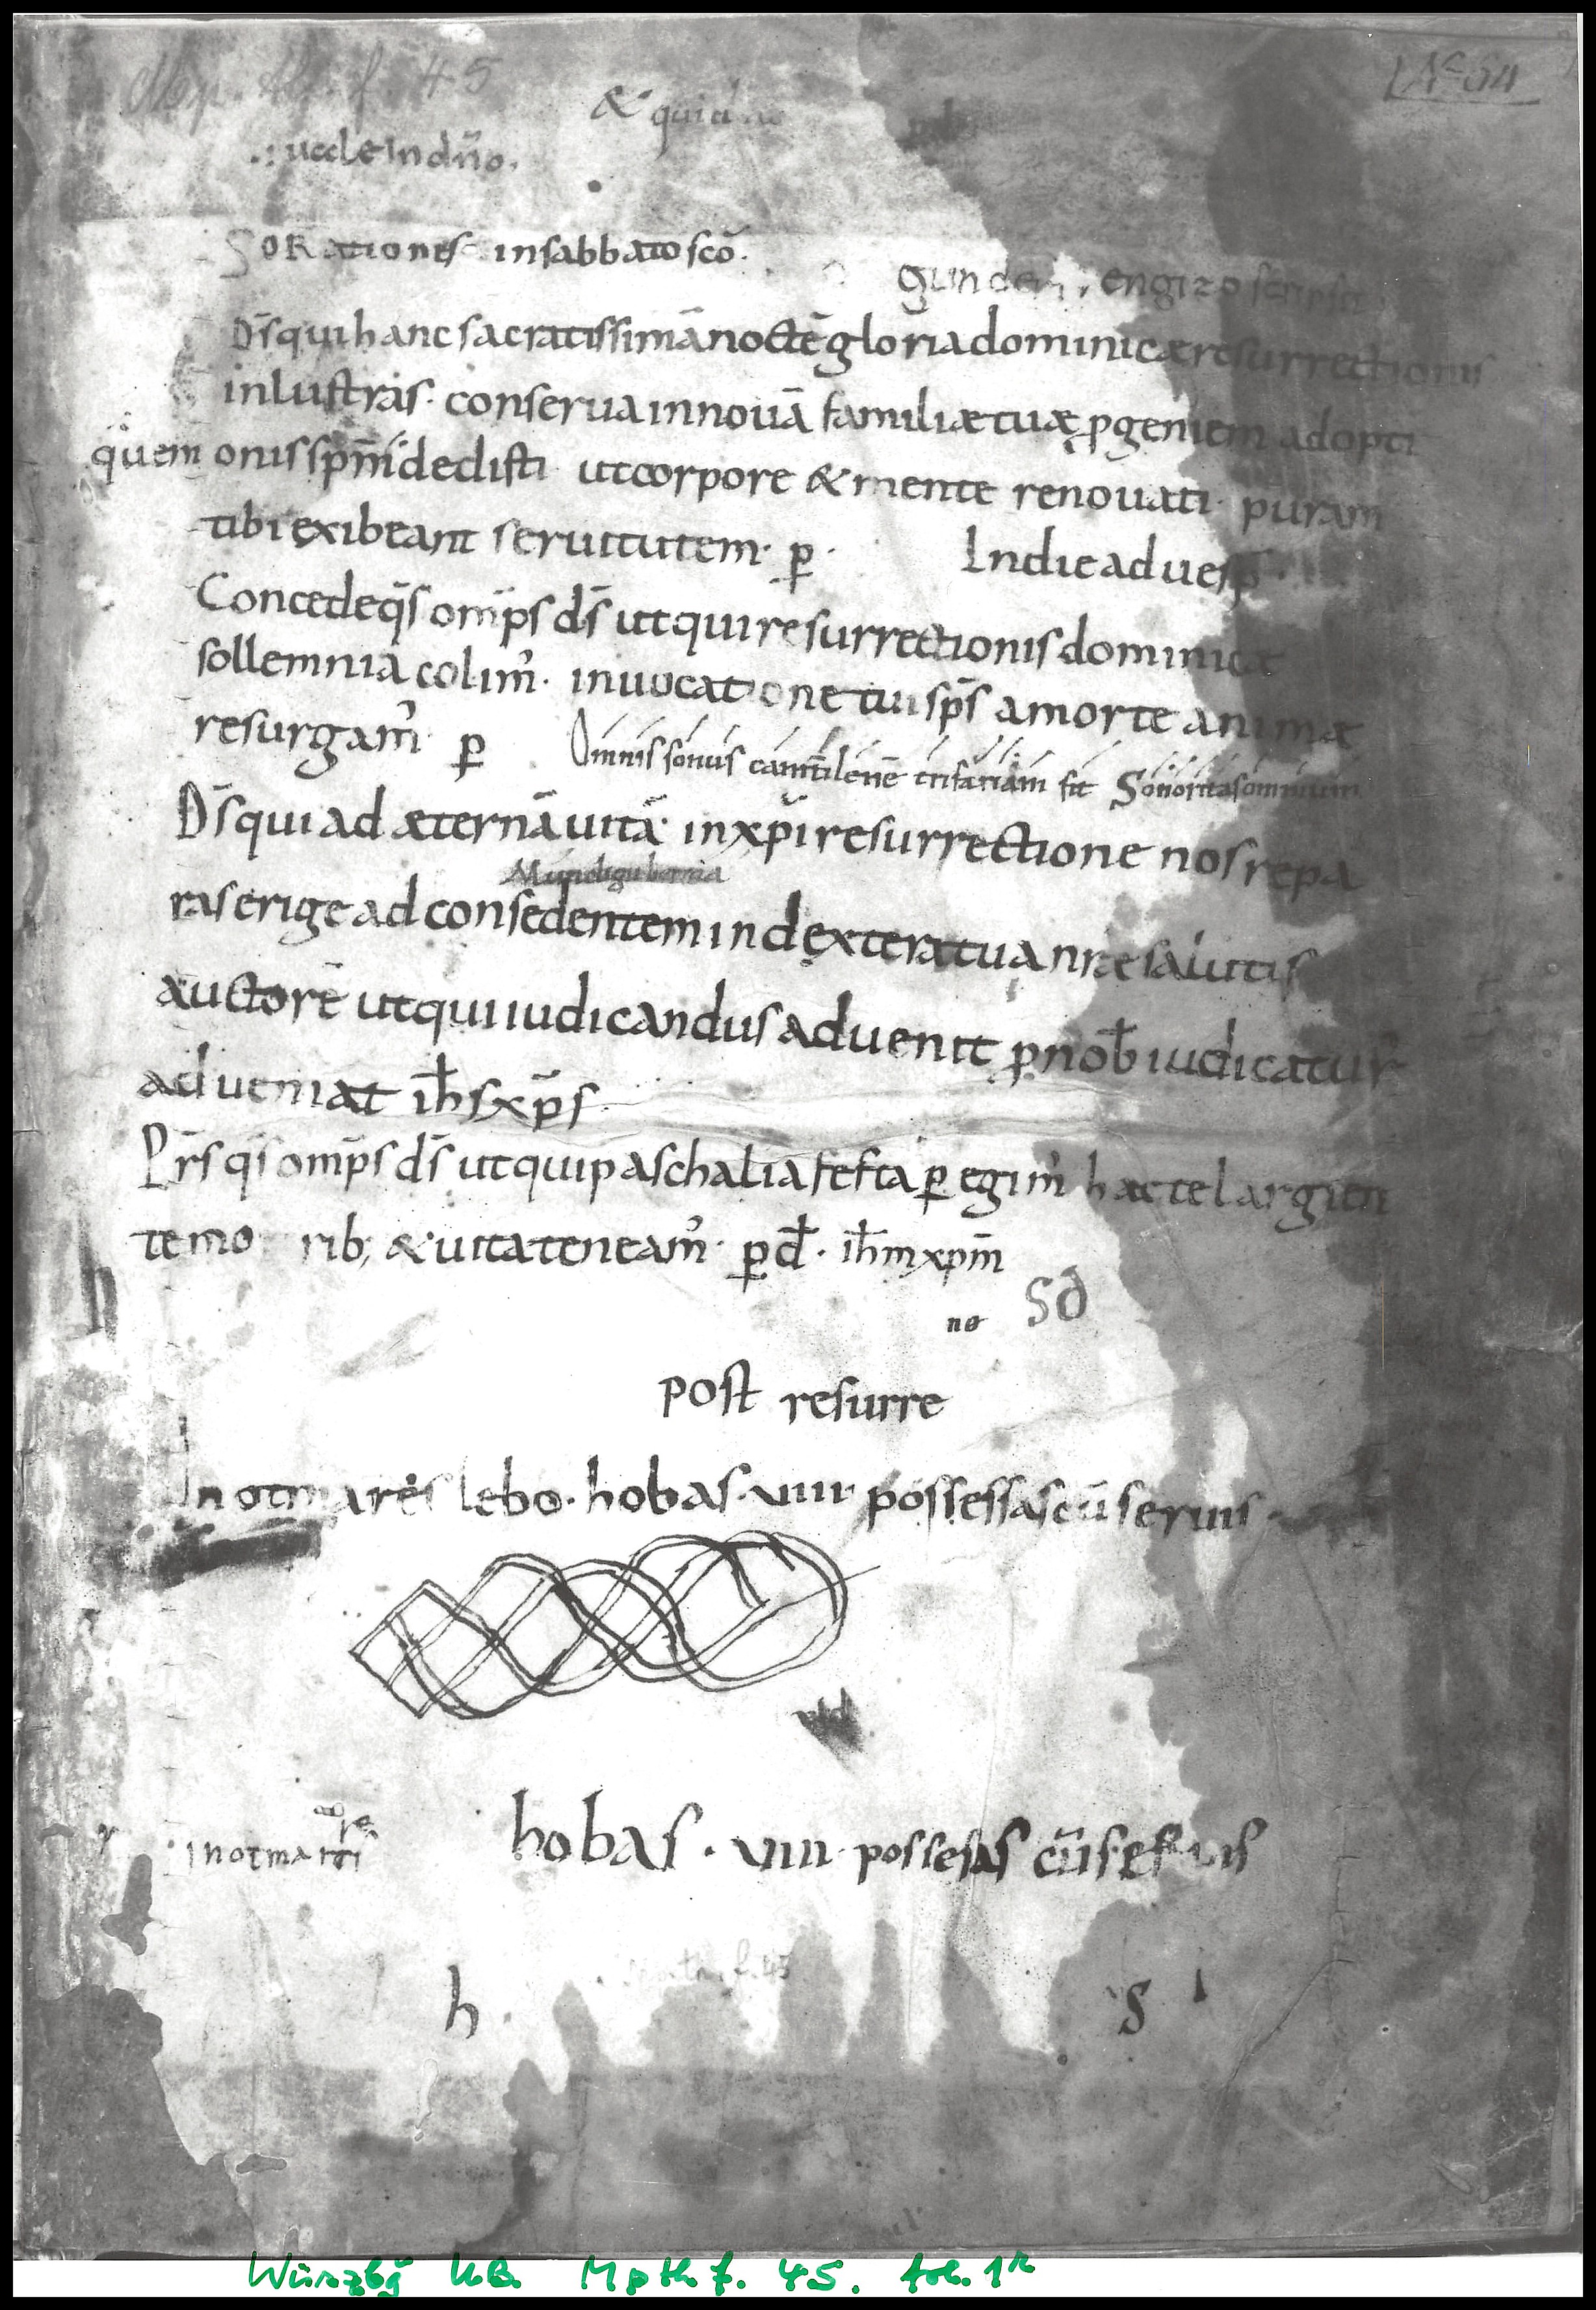 M.p. th. f. 45
& quid
.: uale In dn̄o.
ORationes in sabbato scō.
gun der engizo scripsit
Dś qui hanc sacratissimā noctē gloria dominicæ resurrectionis
inlustras. conserua in nouā familiæ tuæ ꝓgeniem adopti
quem onis sp̄m dedisti ut corpore & mente renouati. puram
tibi exibeant seruitutem. ꝑ. In die ad uesp̄.
Concede q̄s omp̄s dś ut qui resurrectionis dominicæ
sollemnia colim̓. inuocatione tui sp̄s a morte animæ
resurgam̓ ꝑ Omnis sonus cantilenē trifariam fit Sonoritas omnium
Dś qui ad æternā uitā. in xp̄i resurrectione nos repa
Mundi gubernia
ras erige ad consedentem in dextera tua nr̄ae salutis
auctorē ut qui iudicandus aduenit ꝓ nob̄ iudicatur̓
adueniat ih̄s xp̄s.
Pr̄s q̄s omp̄s dś ut qui paschalia festa ꝑegim̓ hæc te largien
te mo rib; & uita teneam̓. ꝑ d̄. ih̄m xpm̄
no
post resurre
In otmares lebo. hobas. uiiii. possessas cū seruis.
In otmar
re
hobas. uiiii. possesas cū seruis
h. s
Würzbg UB. M p th f. 45. fol. 1r